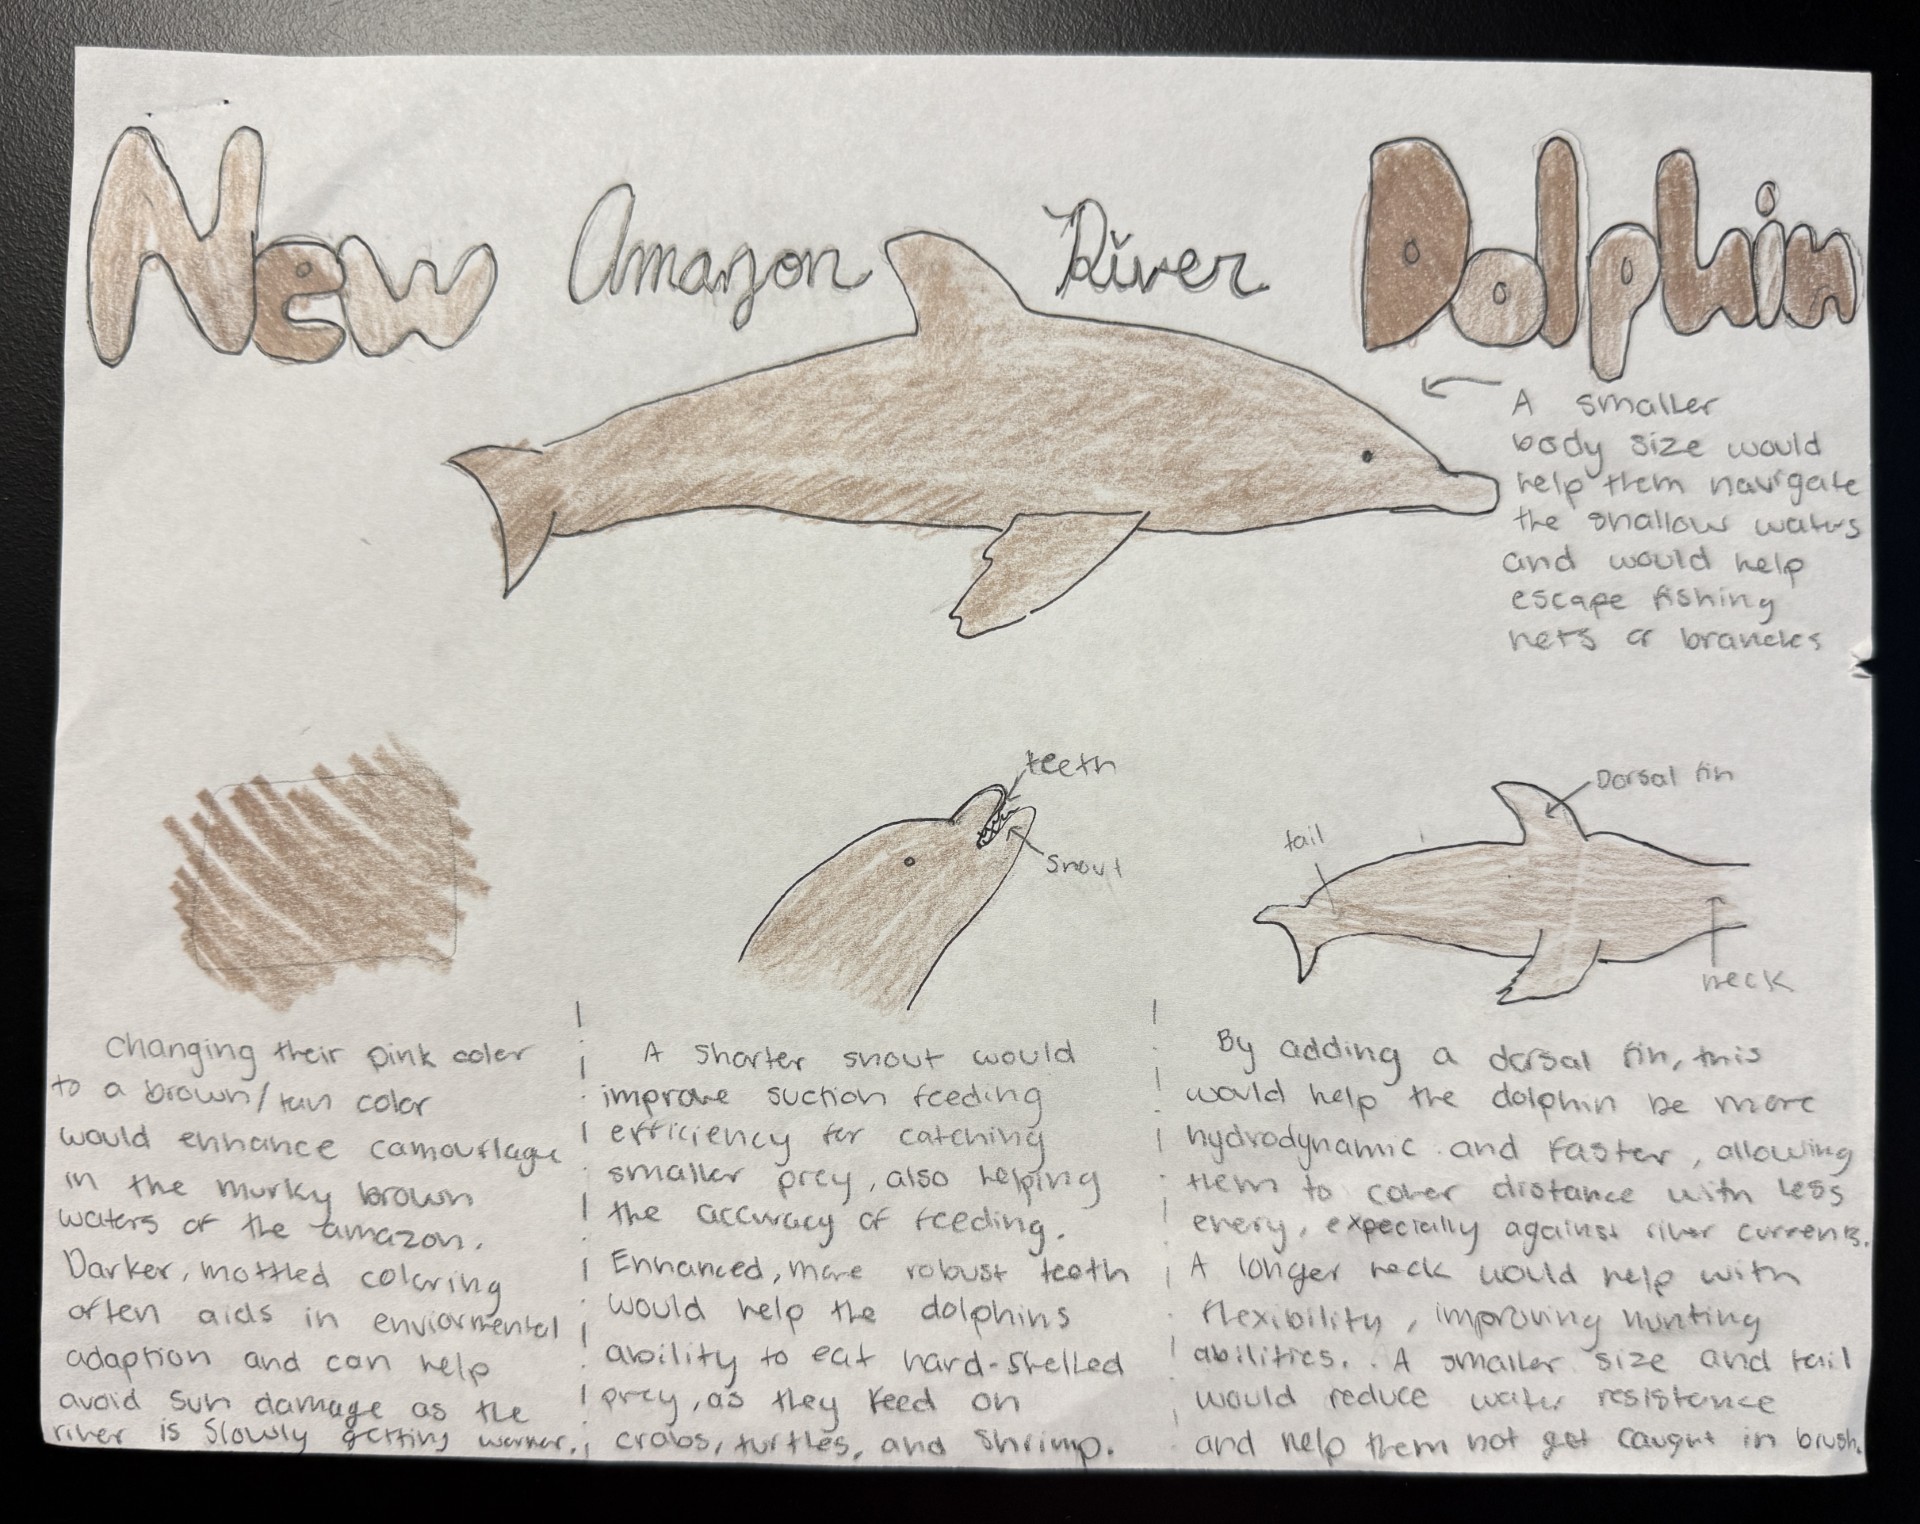 New Amazon River Dolphin
A smaller
body size would
help them navigate
the shallow waters
and would help
escape fishing
nets or branches
teeth
snout
Dorsal fin
tail
neck
Changing their pink color
to a brown/tan color
would enhance camouflage
in the murky brown
waters of the amazon.
Darker, mottled coloring
often aids in enviormental
adaption and can help
avoid sun damage as the
river is slowly getting warmer.
A shorter snout would
improve suction feeding
efficiency for catching
smaller prey, also helping
the accuracy of feeding.
Enhanced, more robust teeth
would help the dolphins
ability to eat hard-shelled
prey, as they feed on
crabs, turtles, and shrimp.
By adding a dorsal fin, this
would help the dolphin be more
hydrodynamic and faster, allowing
them to cover distance with less
enery, expecially against river currents.
A longer neck would help with
flexibility, improving hunting
abilities. A smaller size and tail
would reduce water resistance
and help them not get caught in brush.